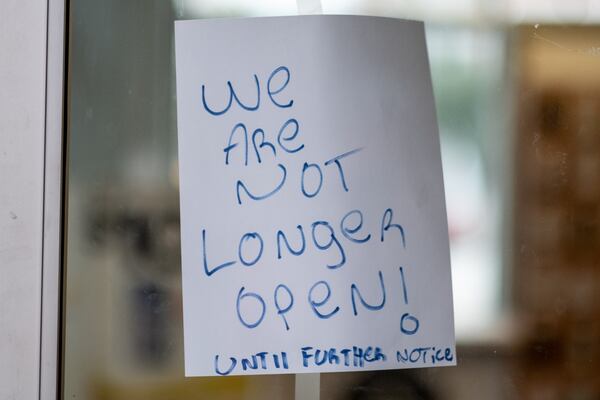 We
ARe
NOT
LONgeR
OPeN!
UNTIl FURTHeR NOTice